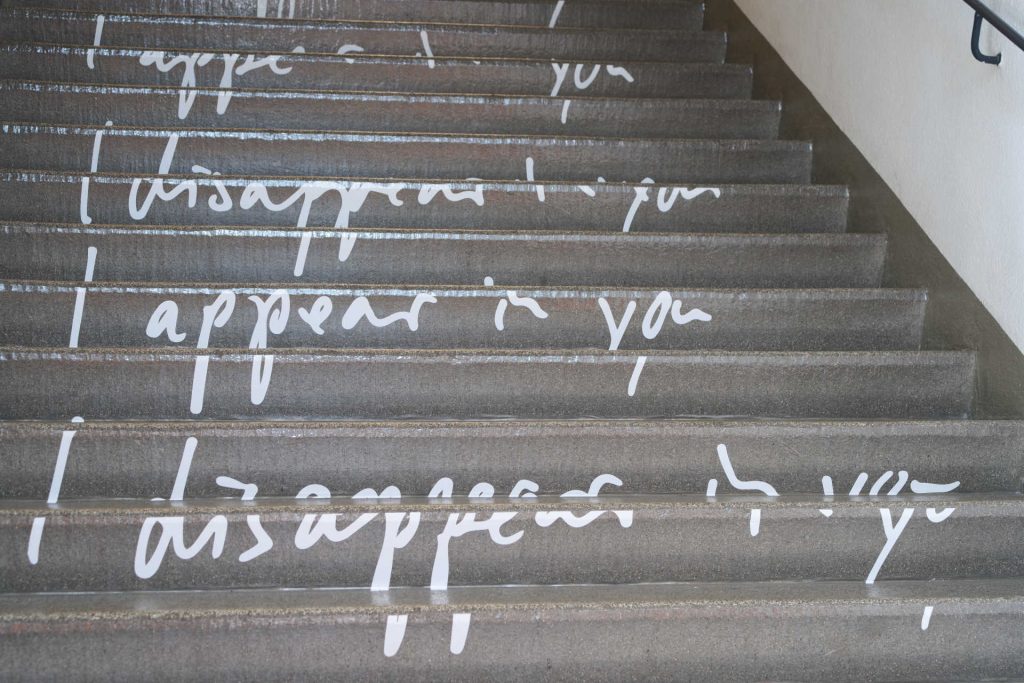 I appear in you
I disappear in you
I appear in you
I disappear in you